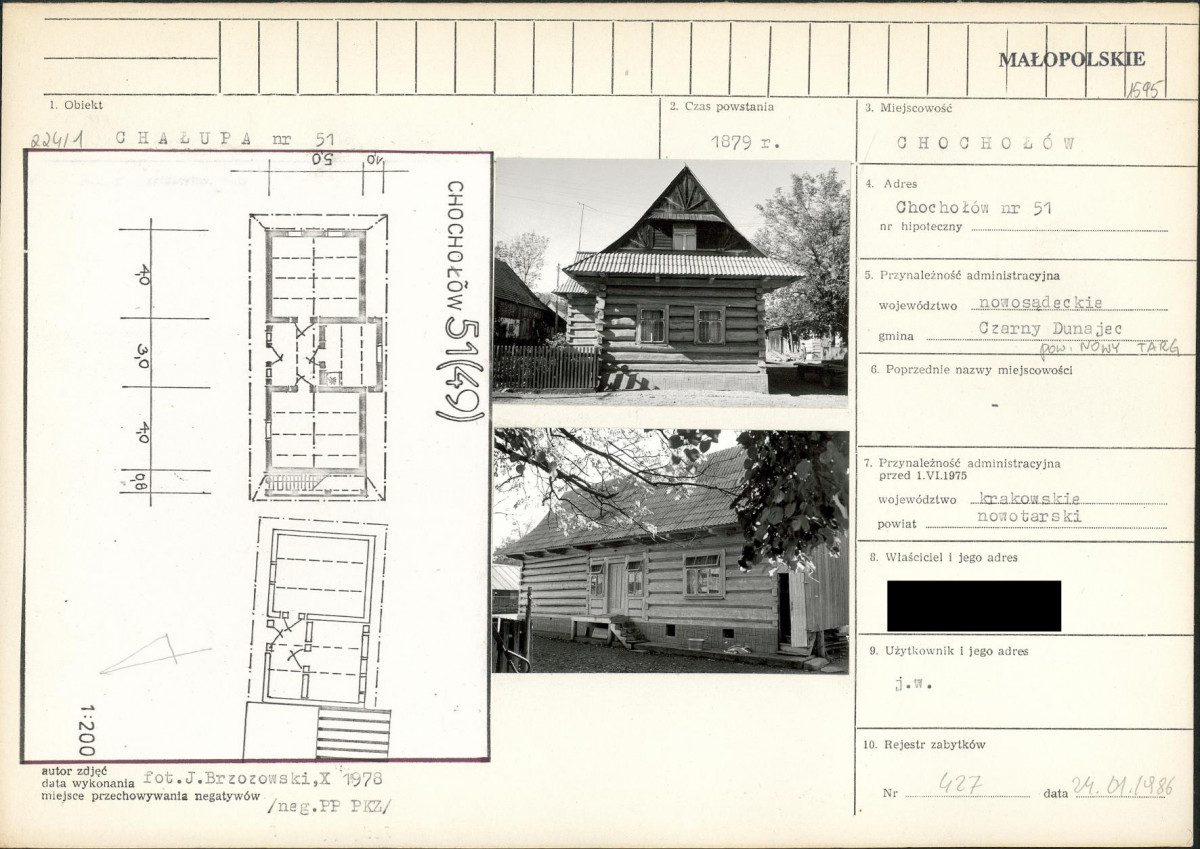 MAŁOPOLSKIE
1595
1. Obiekt
224/1 CHAŁUPA nr 51
2. Czas powstania
1879 r.
3. Miejscowość
CHOCHOŁÓW
4. Adres
Chochołów nr 51
nr hipoteczny
5. Przynależność administracyjna
województwo nowosądeckie
gmina Czarny Dunajec
pow. NOWY TARG
6. Poprzednie nazwy miejscowości
-
7. Przynależność administracyjna
przed 1.VI.1975
województwo krakowskie
powiat nowotarski
8. Właściciel i jego adres
9. Użytkownik i jego adres
j.w.
10. Rejestr zabytków
Nr 427 data 24.01.1986
5,0 1,0
CHOCHOŁÓW 51(49)
4,0
3,0
4,0
0,8
1:200
autor zdjęć
data wykonania fot.J.Brzozowski,X 1978
miejsce przechowywania negatywów /neg.PP PKZ/